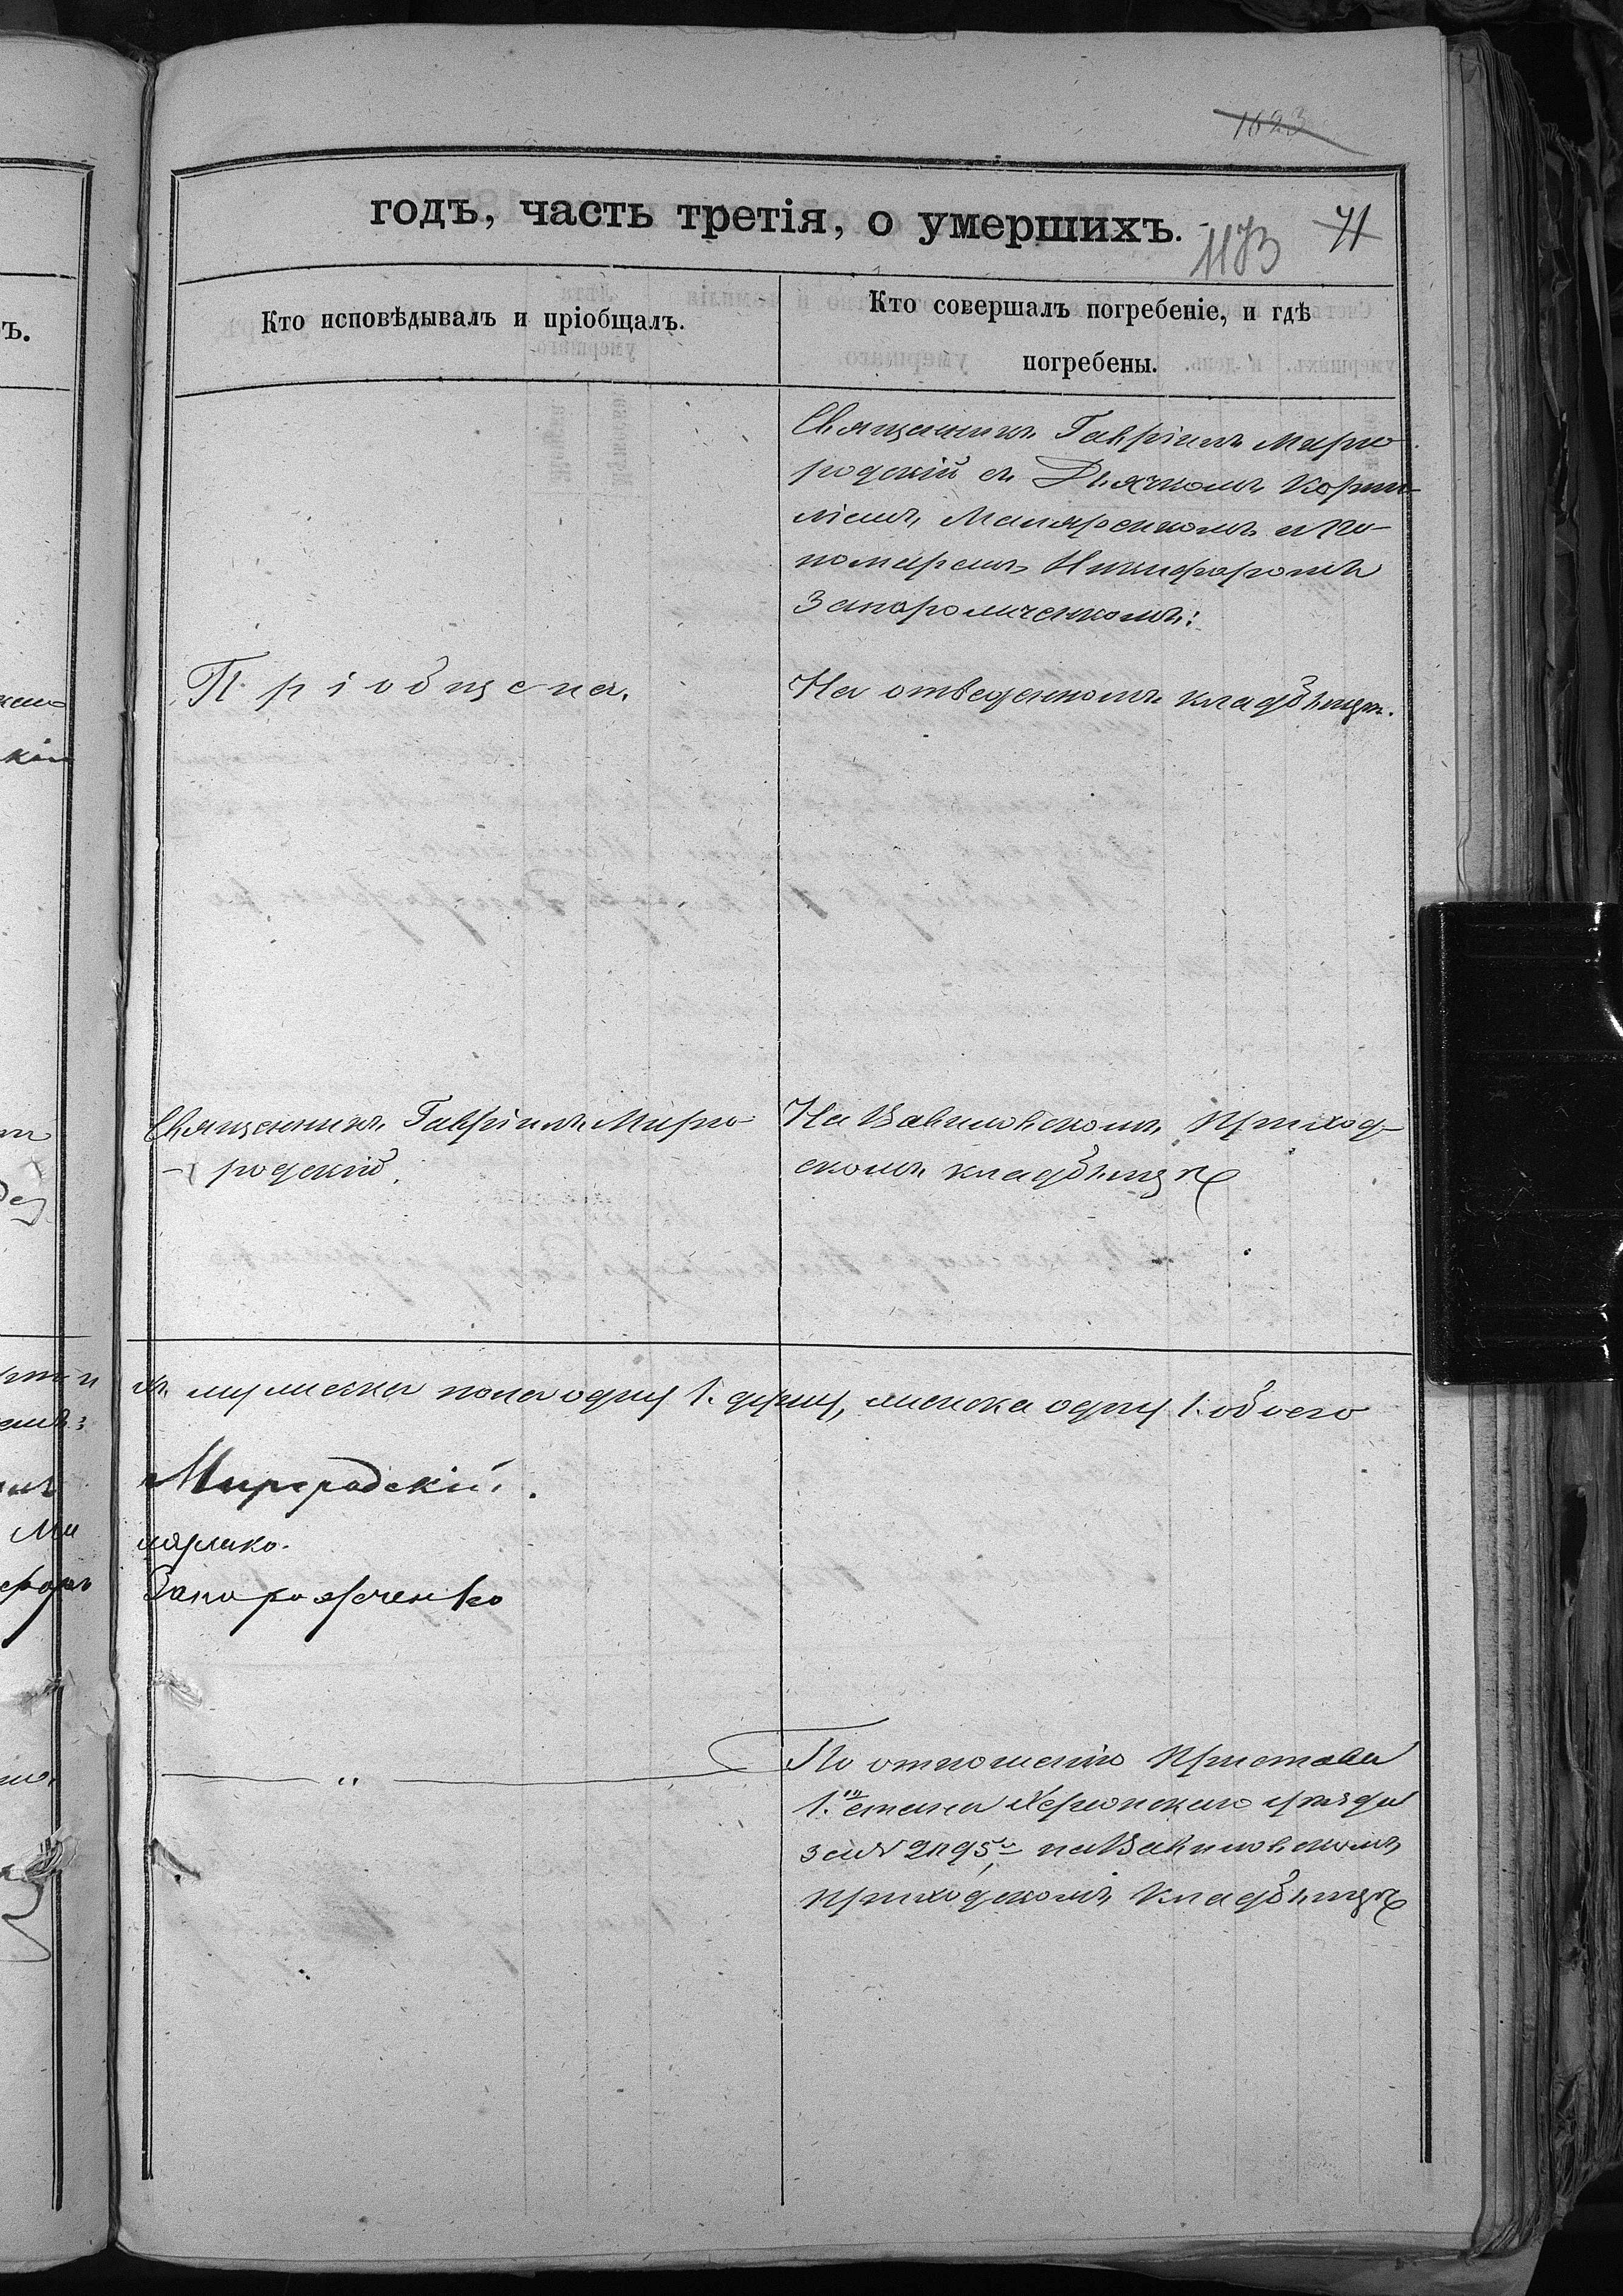 1623
годъ, часть третія, о умершихъ.
1173 71
Кто исповѣдывалъ и пріобщалъ.
Кто совершалъ погребеніе, и гдѣ
погребены.
Священникъ Гавріилъ Мирго
родскій съ Дьячкомъ Корни-
ліемъ Маляренкомъ и По-
номаремъ Никифоромъ
Запорожченкомъ:
Пріобщена.
На отведенномъ кладбищѣ.
Священникъ Гавріилъ Мирго
-родскій.
На Вавиловскомъ Приход-
скомъ кладбищѣ
мужеска пола одну 1. душу, женска одну 1. обоего
Миргородскій.
ляренко.
Запорожченко
— " —
По отношенію Пристава
1.го стана Херсонскаго уѣзда
за № 2195 на Вавиловскомъ
приходскомъ кладбищѣ